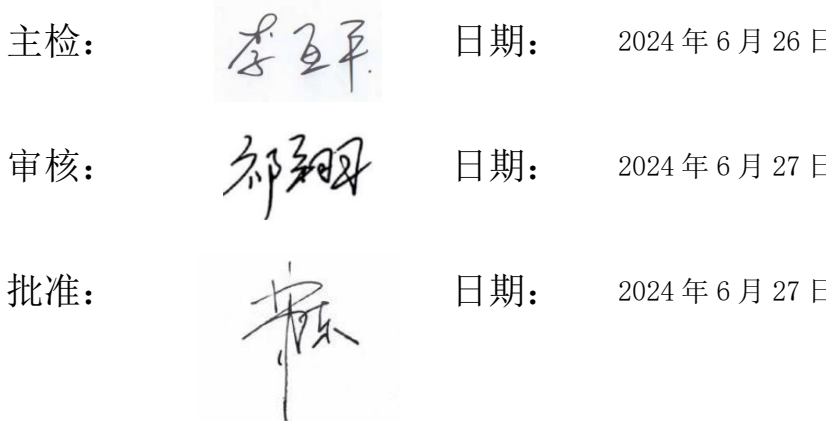 主检： 李亚平 日期： 2024年6月26日
审核： 日期： 2024年6月27日
批准： 日期： 2024年6月27日